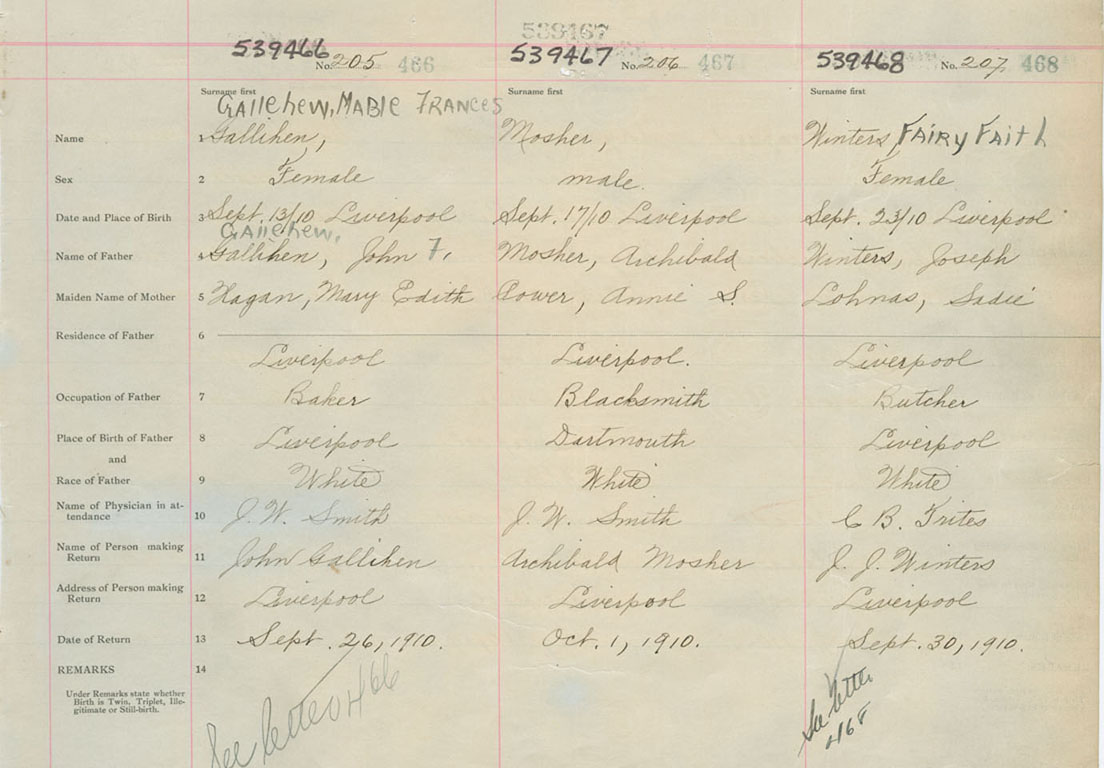 539467
539466 No. 205 466 539467 No. 206 467 539468 No. 207 468
Surname first Surname first Surname first
Gallehew, MABle FRANCes
Name 1 Gallihen, Mosher, Winters FAiRy FAith
Sex 2 Female male. Female
Date and Place of Birth 3 Sept. 13/10 Liverpool Sept. 17/10 Liverpool Sept. 23/10 Liverpool
Gallehew,
Name of Father 4 Gallihen, John F. Mosher, Archibald Winters, Joseph
Maiden Name of Mother 5 Hagan, Mary Edith Cower, Annie S. Lohnas, Sadie
Residence of Father 6
Liverpool Liverpool. Liverpool
Occupation of Father 7 Baker Blacksmith Butcher
Place of Birth of Father 8 Liverpool Dartmouth Liverpool
and
Race of Father 9 White White White
Name of Physician in at-
tendance 10 J. W. Smith J. W. Smith C B. Trites
Name of Person making
Return 11 John Gallihen Archibald Mosher J. J. Winters
Address of Person making
Return 12 Liverpool Liverpool Liverpool
Date of Return 13 Sept. 26, 1910. Oct. 1, 1910. Sept. 30, 1910.
REMARKS 14
Under Remarks state whether
Birth is Twin, Triplet, Ille-
gitimate or Still-birth.
See letter 466
See letter
468